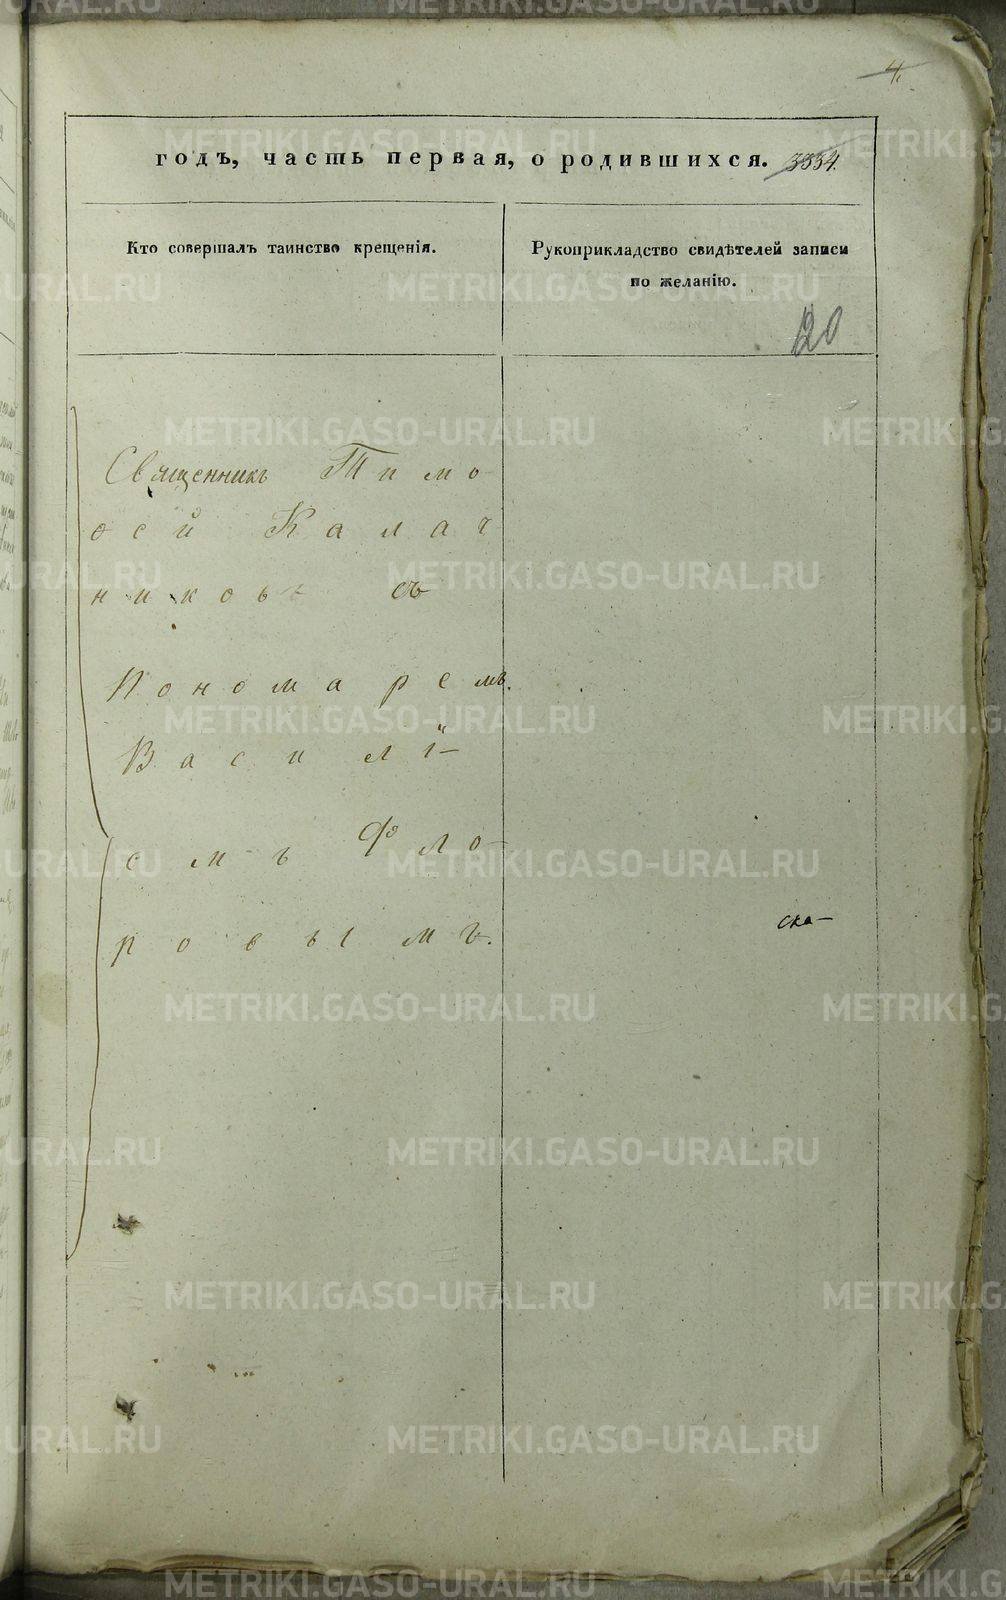 4.
годъ, часть первая, о родившихся. 3334.
Кто совершалъ таинство крещенія.
Рукоприкладство свидѣтелей записи
по желанію.
120
Священникъ Тимо-
ѳей Калач
никовъ съ
Пономаремъ.
Василі-
емъ Фло-
ровымъ.
ска-
METRIKI.GASO-URAL.RU